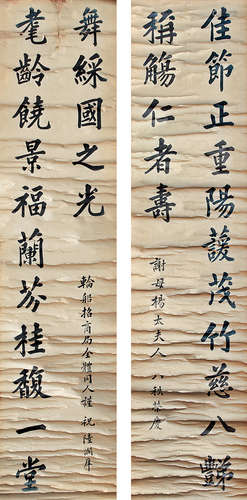 佳節正重陽蘐茂竹慈八豑
稱觴仁者壽
謝母楊太夫人八秩榮慶
耄齡饒景福蘭芬桂馥一堂
舞綵國之光
輪船招商局全體同人謹祝 陸潤庠